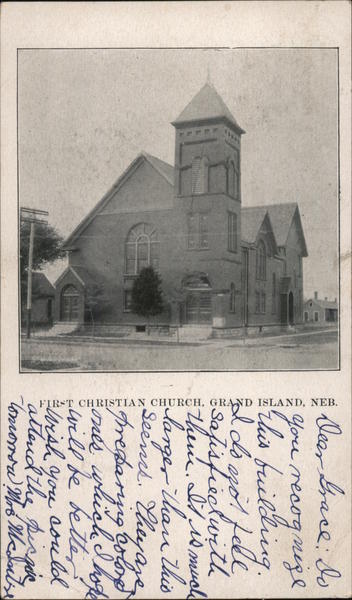 FIRST CHRISTIAN CHURCH, GRAND ISLAND, NEB.
Dear Grace. Do
you recognize
this building
I do not feel
satisfied with
them. It is much
larger than this
seems. They are
preparing good
one which I hope
will be better,
Wish you could
attend the picnic
tomorrow, Mrs